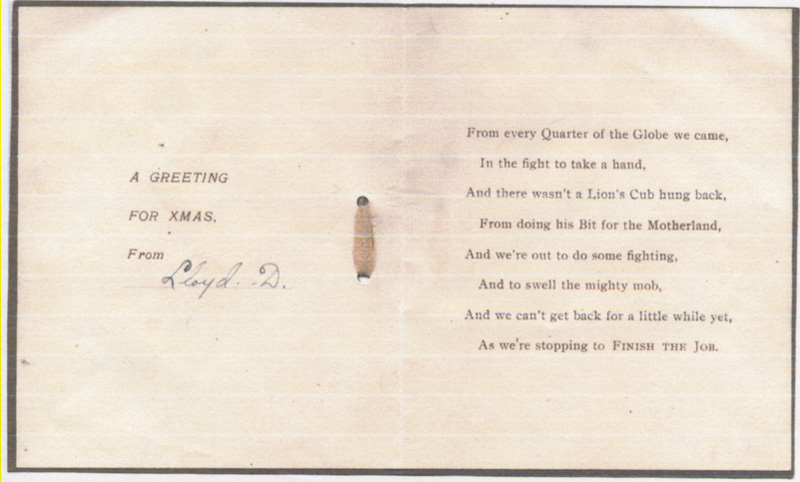 A GREETING
FOR XMAS,
From
Lloyd. D.
From every Quarter of the Globe we came,
In the fight to take a hand,
And there wasn't a Lion's Cub hung back,
From doing his Bit for the Motherland,
And we're out to do some fighting,
And to swell the mighty mob,
And we can't get back for a little while yet,
As we're stopping to FINISH THE JOB.